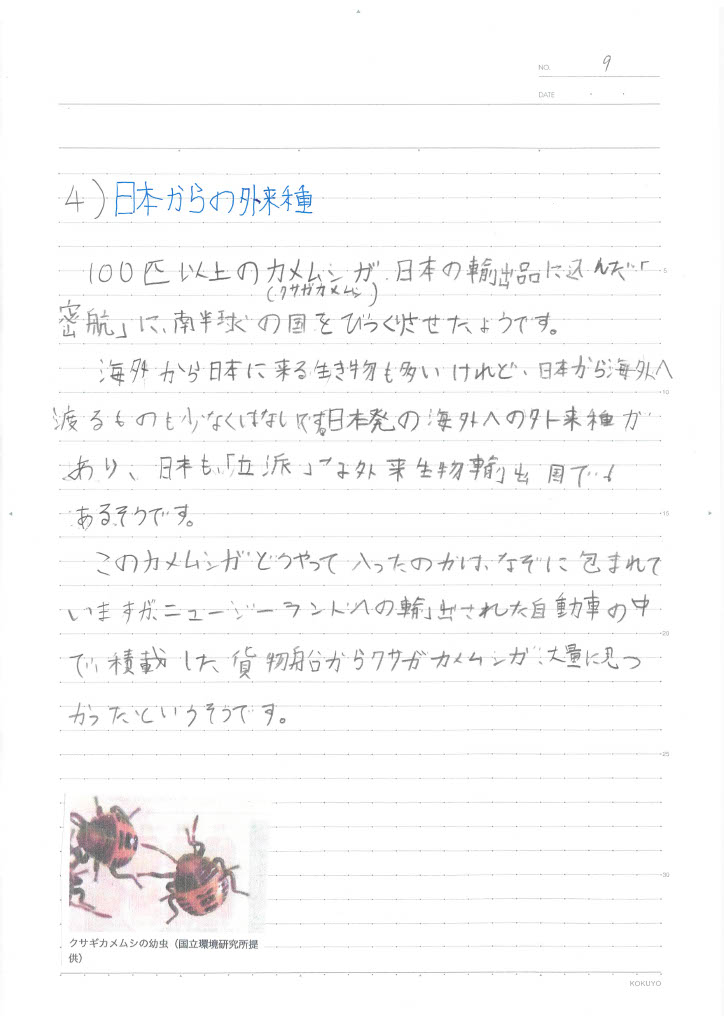 NO. 9
DATE
4）日本からの外来種
100匹以上のカメムシが、日本の輸出品に込んだ「
(クサガカメムシ)
密航」に、南半球の国をびっくりさせたようです。
海外から日本に来る生き物も多いけれど、日本から海外へ
渡るものも少なくはないです。日本発の海外への外来種が
あり、日本も、「立派」な外来生物輸出国でも
あるそうです。
このカメムシがどうやって入ったのかは、なぞに包まれて
いますが、ニュージーランドへの輸出された自動車の中
で、積載した、貨物船からクサガカメムシが、大量に見つ
かったというそうです。
クサギカメムシの幼虫（国立環境研究所提
供）
5
10
15
20
25
30
KOKUYO